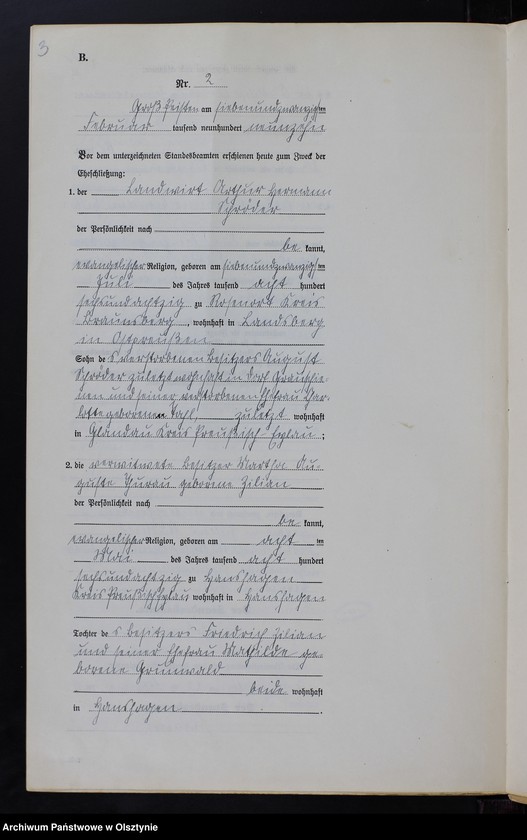 3
B.
Nr. 2
Großpeisten am siebenundzwanzigsten
Februar tausend neunhundert neunzehn
Vor dem unterzeichneten Standesbeamten erschienen heute zum Zweck der
Eheschließung:
1. der Landwirt Arthur Hermann
Schröder
der Persönlichkeit nach
be kannt,
evangelischer Religion, geboren am siebenundzwanzigsten
Juli des Jahres tausend acht hundert
sechsundachtzig zu Rosenort Kreis
Braunsberg, wohnhaft in Landsberg
in Ostpreußen
Sohn des verstorbenen Besitzers August
Schröder zuletzt wohnhaft in Dorf
und seiner verstorbenen Ehefrau Char-
lotte geborenen zuletzt wohnhaft
in Glandau Kreis Preußisch Eylau;
2. die verwitwete Besitzer Martha Au-
guste Thurau geborene Zilian
der Persönlichkeit nach
be kannt,
evangelischer Religion, geboren am acht ten
Mai des Jahres tausend acht hundert
sechsundachtzig zu Hanshagen
Kreis Preußisch Eylau wohnhaft in Hanshagen
Tochter des Besitzers Friedrich Zilian
und seiner Ehefrau Mathilde ge-
borene Grunwald
beide wohnhaft
in Hanshagen.
Archiwum Państwowe w Olsztynie